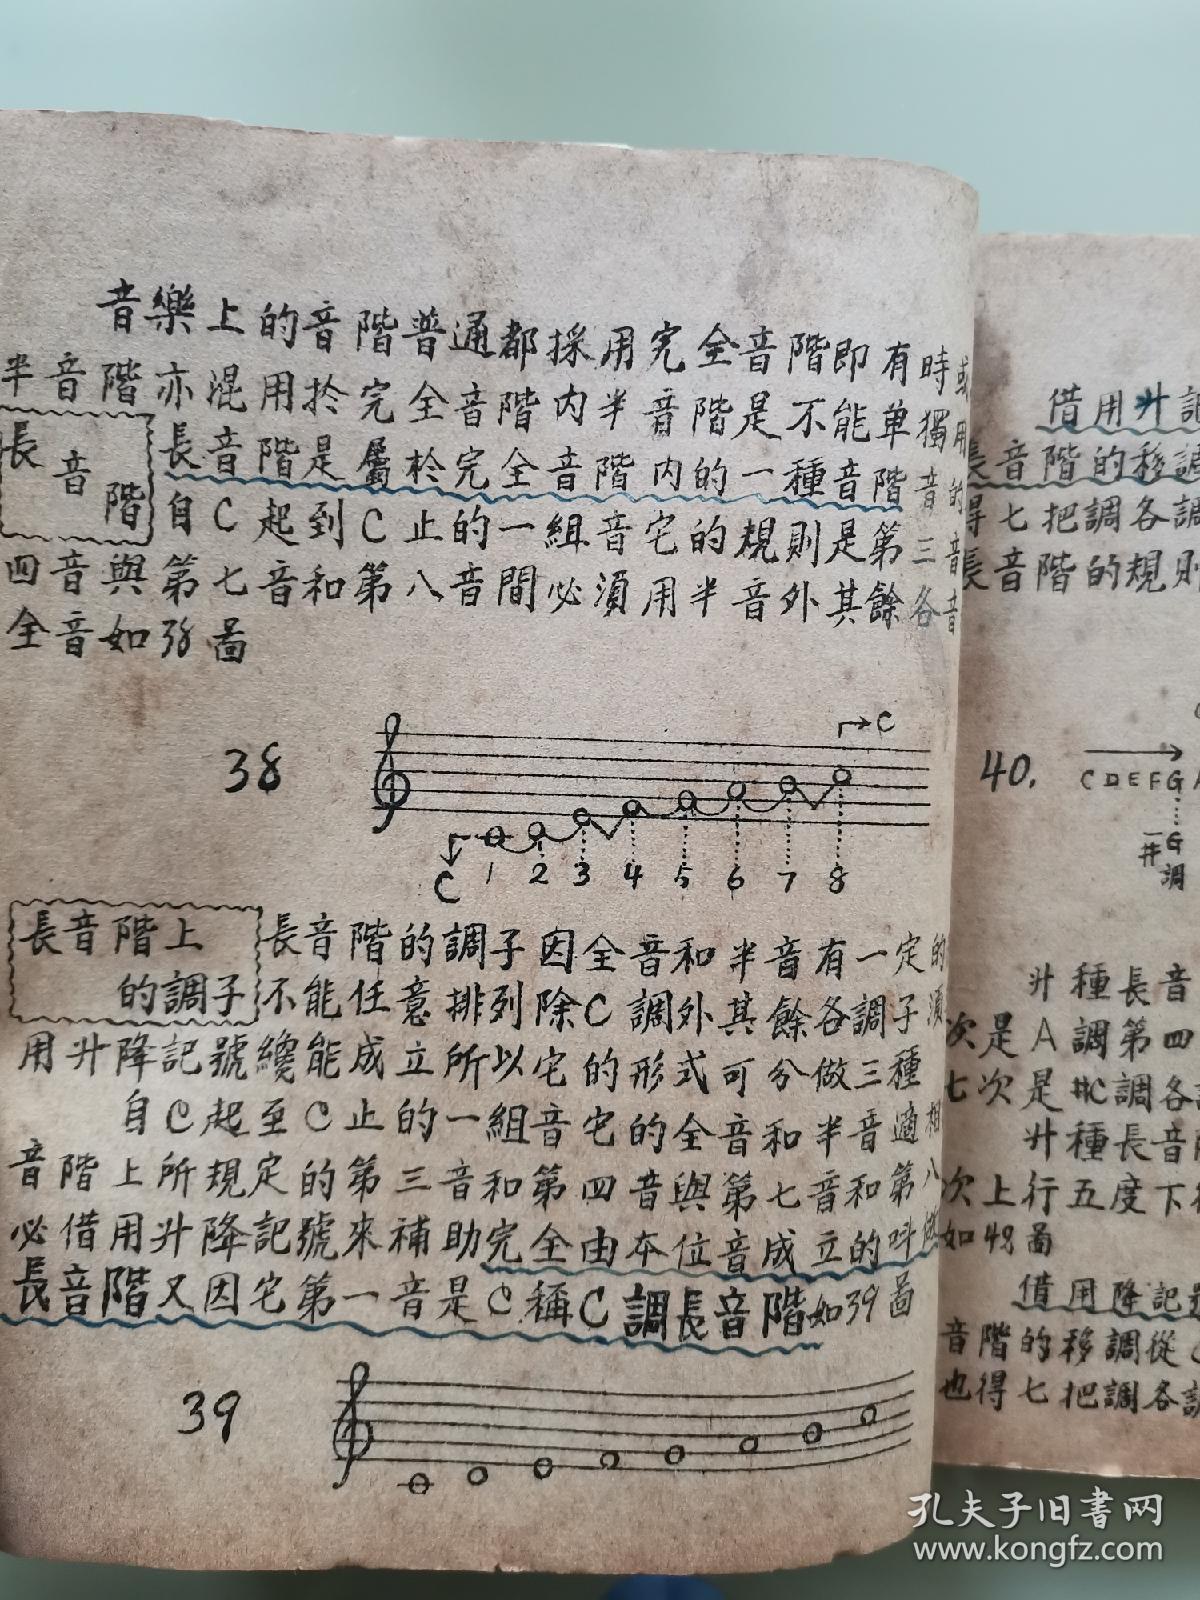 音樂上的音階普通都採用完全音階即有時或
半音階亦混用於完全音階內半音階是不能单獨用
長音階
長音階是屬於完全音階內的一種音階
自C起到C止的一組音宅的規則是第三音
四音與第七音和第八音間必須用半音外其餘各音
全音如38圖
38
C
C 1 2 3 4 5 6 7 8
長音階上的調子
長音階的調子因全音和半音有一定的
不能任意排列除C調外其餘各調子須
用升降記號纔能成立所以宅的形式可分做三種
自C起至C止的一組音宅的全音和半音適相
音階上所規定的第三音和第四音與第七音和第八
必借用升降記號來補助完全由本位音成立的叫
長音階又因宅第一音是C稱C調長音階如39圖
39
借用升調
長音階的移調
得七把調各調
長音階的規則
40.
C D E F G A
一#G調
升種長音
次是A調第四
七次是#C調各
升種長音階
次上行五度下
如48圖
借用降記
音階的移調從C
也得七把調各
孔夫子旧書网
www.kongfz.com